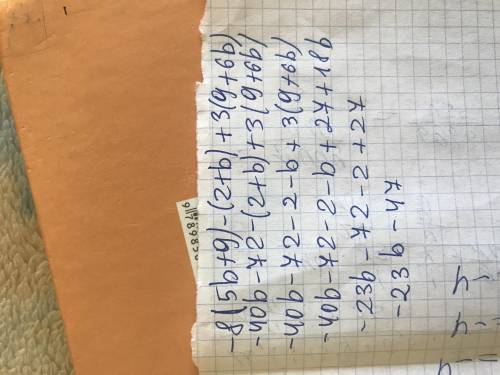 -8(5b+9)-(2+b)+3(9+6b)
-40b-72-(2+b)+3(9+6b)
-40b-72-2-b+3(9+6b)
-40b-72-2-b+27+18b
-23b-72-2+27
-23b-47